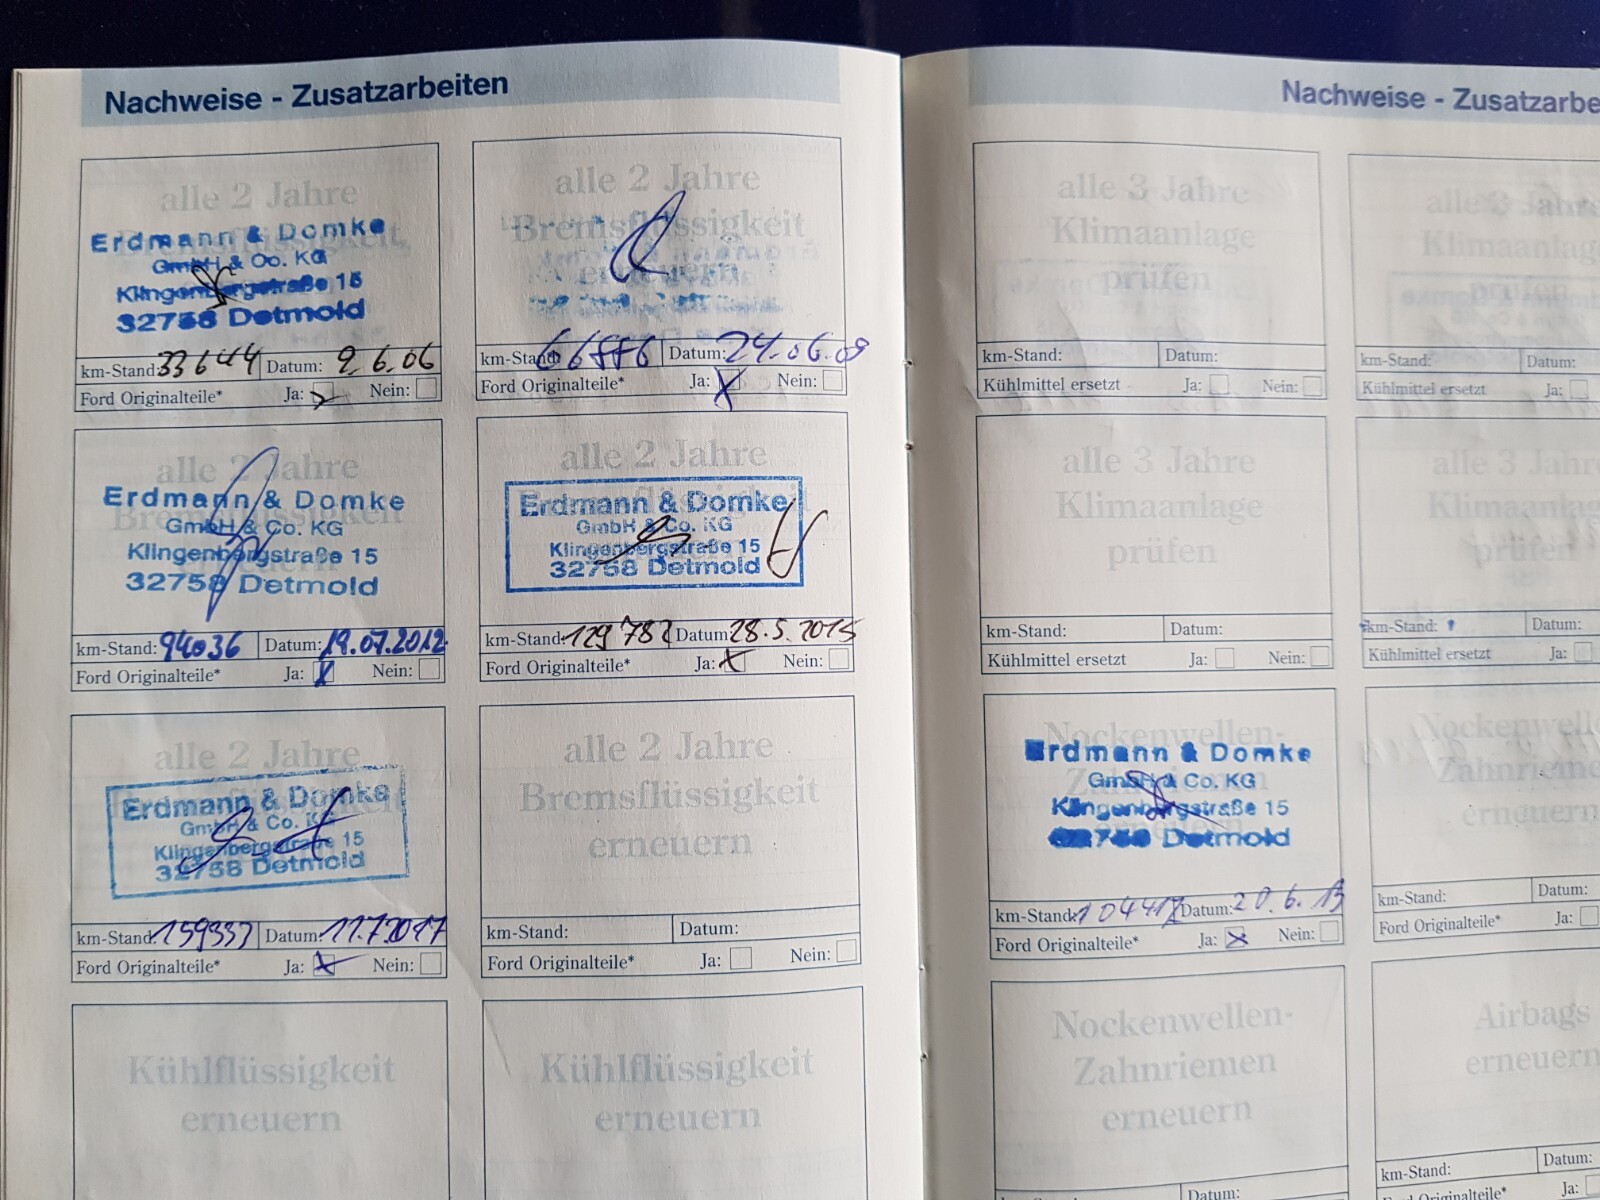 Nachweise - Zusatzarbeiten
alle 2 Jahre
Erdmann & Domke
GmbH & Co. KG
Klingenbergstraße 15
32758 Detmold
km-Stand: 33644 Datum: 9.6.06
Ford Originalteile* Ja: Nein:
alle 2 Jahre
Bremsflüssigkeit
erneuern
km-Stand: Datum: 24.06.09
Ford Originalteile* Ja: X Nein:
alle 2 Jahre
Bremsflüssigkeit
Erdmann & Domke
GmbH & Co. KG
Klingenbergstraße 15
32758 Detmold
km-Stand: 94036 Datum: 19.07.2012
Ford Originalteile* Ja: X Nein:
alle 2 Jahre
Erdmann & Domke
GmbH & Co. KG
Klingenbergstraße 15
32758 Detmold
km-Stand: 129782 Datum: 28.5.2015
Ford Originalteile* Ja: X Nein:
alle 2 Jahre
Erdmann & Domke
GmbH & Co. KG
Klingenbergstraße 15
32758 Detmold
km-Stand: 159337 Datum: 11.7.2017
Ford Originalteile* Ja: X Nein:
alle 2 Jahre
Bremsflüssigkeit
erneuern
km-Stand: Datum:
Ford Originalteile* Ja: Nein:
Kühlflüssigkeit
erneuern
Kühlflüssigkeit
erneuern
Nachweise - Zusatzarbe
alle 3 Jahre
Klimaanlage
prüfen
km-Stand: Datum:
Kühlmittel ersetzt Ja: Nein:
alle 3 Jahre
Klimaanlage
prüfen
km-Stand: Datum:
Kühlmittel ersetzt Ja:
alle 3 Jahre
Klimaanlage
prüfen
km-Stand: Datum:
Kühlmittel ersetzt Ja: Nein:
alle 3 Jahre
Klimaanlage
prüfen
km-Stand: Datum:
Kühlmittel ersetzt Ja:
Nockenwellen-
Erdmann & Domke
GmbH & Co. KG
Klingenbergstraße 15
Detmold
km-Stand: Datum: 20.6.13
Ford Originalteile* Ja: X Nein:
Nockenwelle
Zahnrieme
erneuern
km-Stand: Datum:
Ford Originalteile* Ja:
Nockenwellen-
Zahnriemen
erneuern
Datum:
Airbags
erneuern
km-Stand: Datum:
Ford Originalteile* Ja: